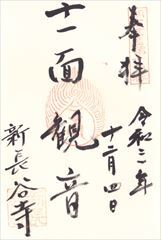 奉拝
令和三年
十二月四日
十一面観音
新長谷寺